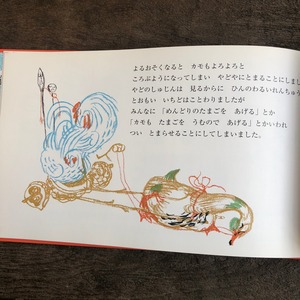 よるおそくなると カモもよろよろと
ころぶようになってしまい やどやにとまることにしまし
やどのしゅじんは 見るからに ひんのわるいれんちゅう
とおもい いちどはことわりましたが
みんなに「めんどりのたまごを あげる」とか
「カモも たまごを うむので あげる」とかいわれ
つい とまらせることにしてしまいました。